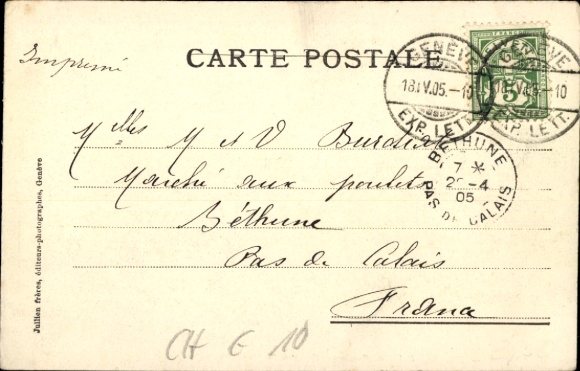 Imprimé
CARTE POSTALE
GENÈVE
18.IV.05.-10
EXP. LETT.
GENÈVE
18.IV.05.-10
EXP. LETT.
5
Mlles M et V
Marché aux poulets
Béthune
Pas de Calais
France
BÉTHUNE
7 *
-4
05
PAS DE CALAIS
Jullien frères, éditeurs-photographes, Genève
CH G 10